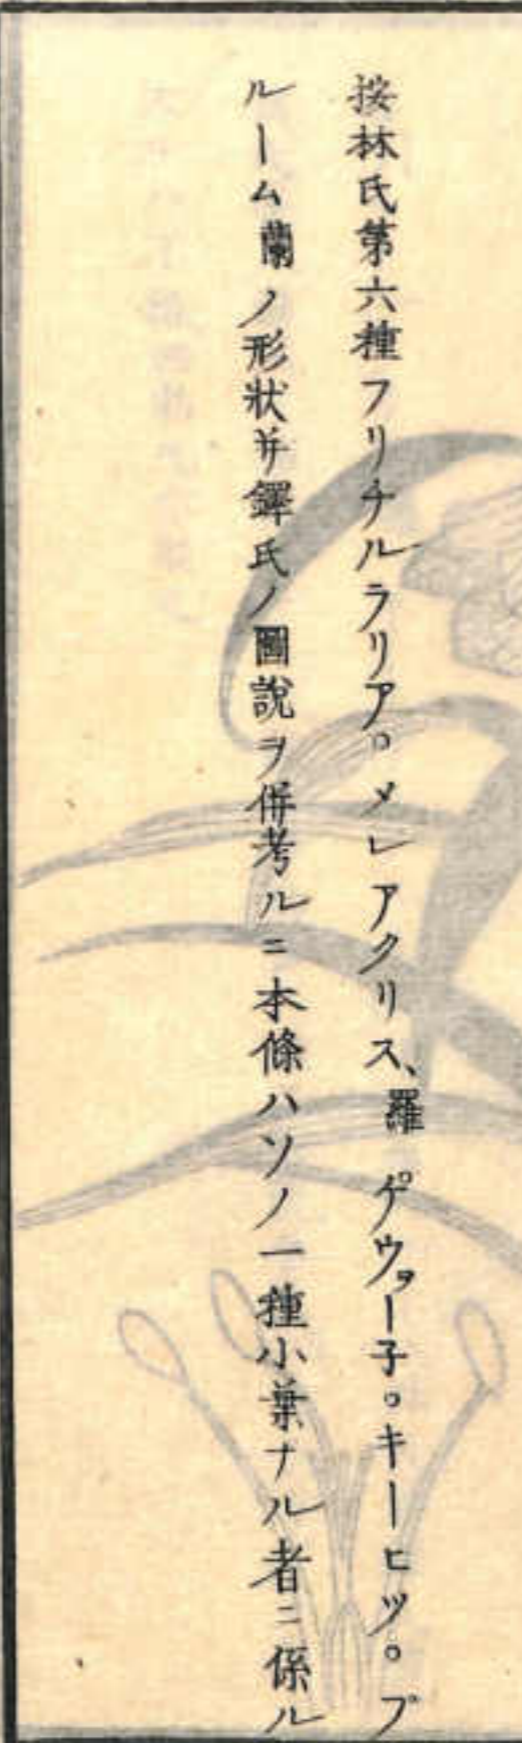 按林氏第六種フリチルラリア。メレアクリス、羅 ゲウヲー子。キーヒツ。プ
ルーム蘭ノ形狀并鐸氏ノ圖說ヲ併考ルニ本條ハソノ一種小葉ナル者ニ係ル